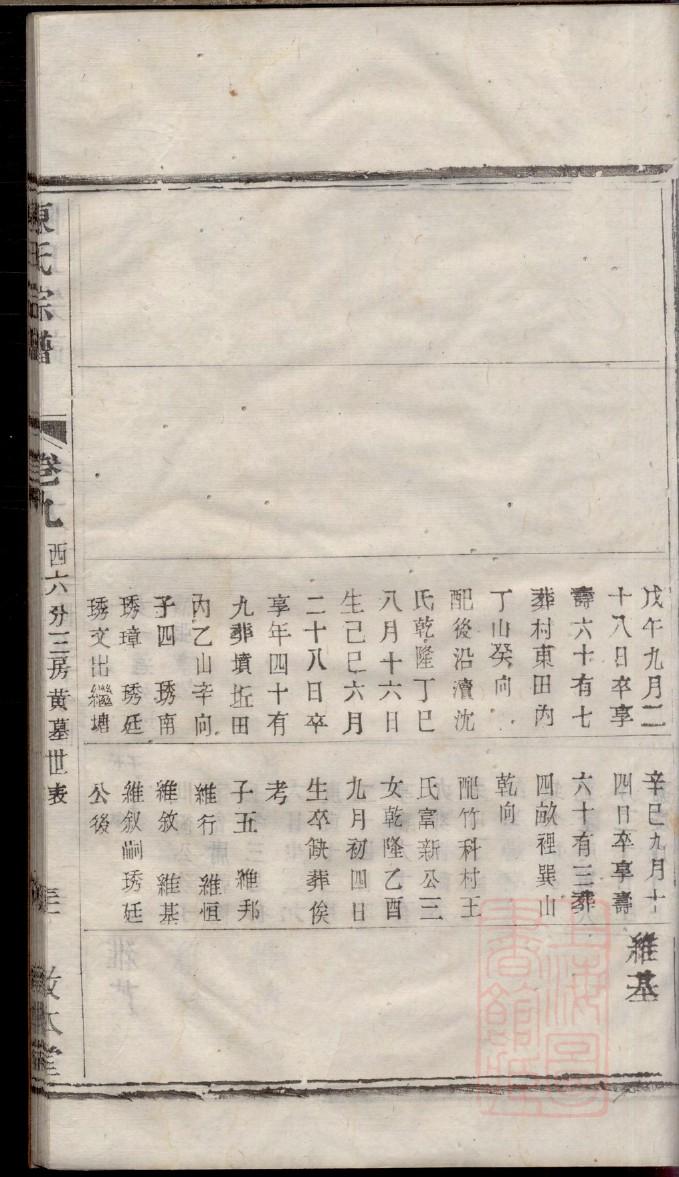 戊午九月二
十八日卒享
壽六十有七
葬村東田內
丁山癸向
配後沿瀆沈
氏乾隆丁巳
八月十六日
生己巳六月
二十八日卒
享年四十有
九葬墳坵田
內乙山辛向
子四 琇南
琇璋 琇廷
琇文出繼塘
辛巳九月十
四日卒享壽
六十有三葬
四畝裡巽山
乾向
配竹科村王
氏富新公三
女乾隆乙酉
九月初四日
生卒缺葬俟
考
子五 維邦
維行 維恒
維敘 維基
維叙嗣琇廷
公後
維基
陳氏宗譜
卷九
西六分三房黃墓世表
敘本堂
上海圖書館藏